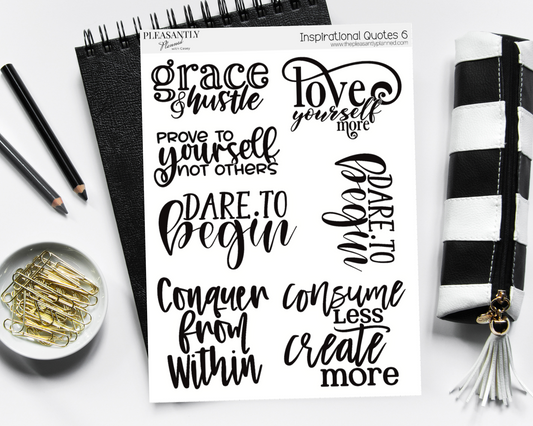 PLEASANTLY
Planned
Inspirational Quotes 6
www.thepleasantlyplanned.com
grace
& hustle
love
yourself
more
PROVE TO
yourself
NOT OTHERS
DARE TO
begin
DARE TO
begin
Conquer
from
Within
consume
LESS
create
more